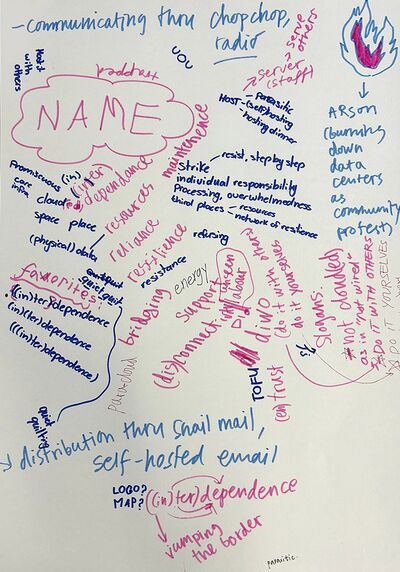 - communicating thru chopchop,
radio
Host
with
others
paddhatt
YOU
serve
others
server
(staff)
NAME
HOST
Parasitic
(self)hosting
hosting dinner
ARSON
(burning
down
data
centers
as
community
protest)
maintenence
Strike
resist, step by step
individual responsibility
Processing, overwhelmedness
third places
resources
network of resilience
Promiscuous
care
infra
(in)
(inter)
dependance
cloud(ed)
Space place
(physical) data
resources
reliance
resilience
refusing
resistance
favorites:
quiet quit
((in)ter)dependence
(in)(ter)dependence
(((in)ter)dependence)
bridging
energy
para-cloud
(dis)connect
support
unseen
labour
diwo
(do it with others)
do it yourselves
TOFU
(en)trust
Slogans:
#not clouded,
as in "not wired"
#DO IT WITH OTHERS
#DO IT YOURSELVES
quiet
quilting
distribution thru snail mail,
self-hosted email
LOGO?
MAP?
((in)ter)dependence
vamping
the border
parasitic-